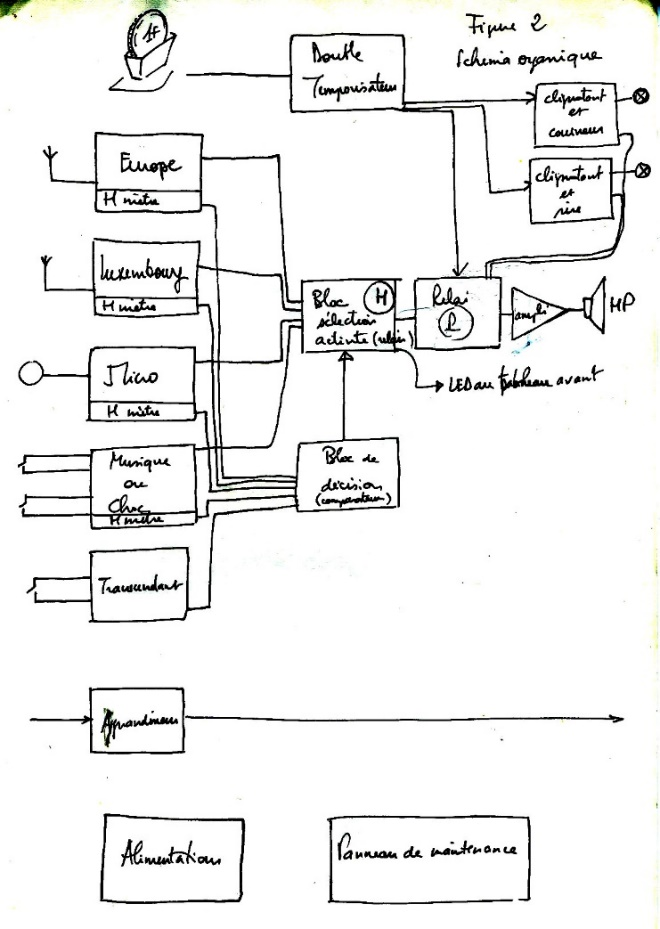 Figure 2
Schema organique
1F
Double
Temporisateur
clignotant
et
couineur
clignotant
et
rire
Europe
H mètre
Luxembourg
H mètre
Micro
H mètre
Musique
ou
Choc
H mètre
Transcendant
Bloc
sélection
activite (relais)
H
Relai
R
ampli
HP
LED au tableau avant
Bloc de
décision
(comparateur)
Alimentations
Panneau de maintenance